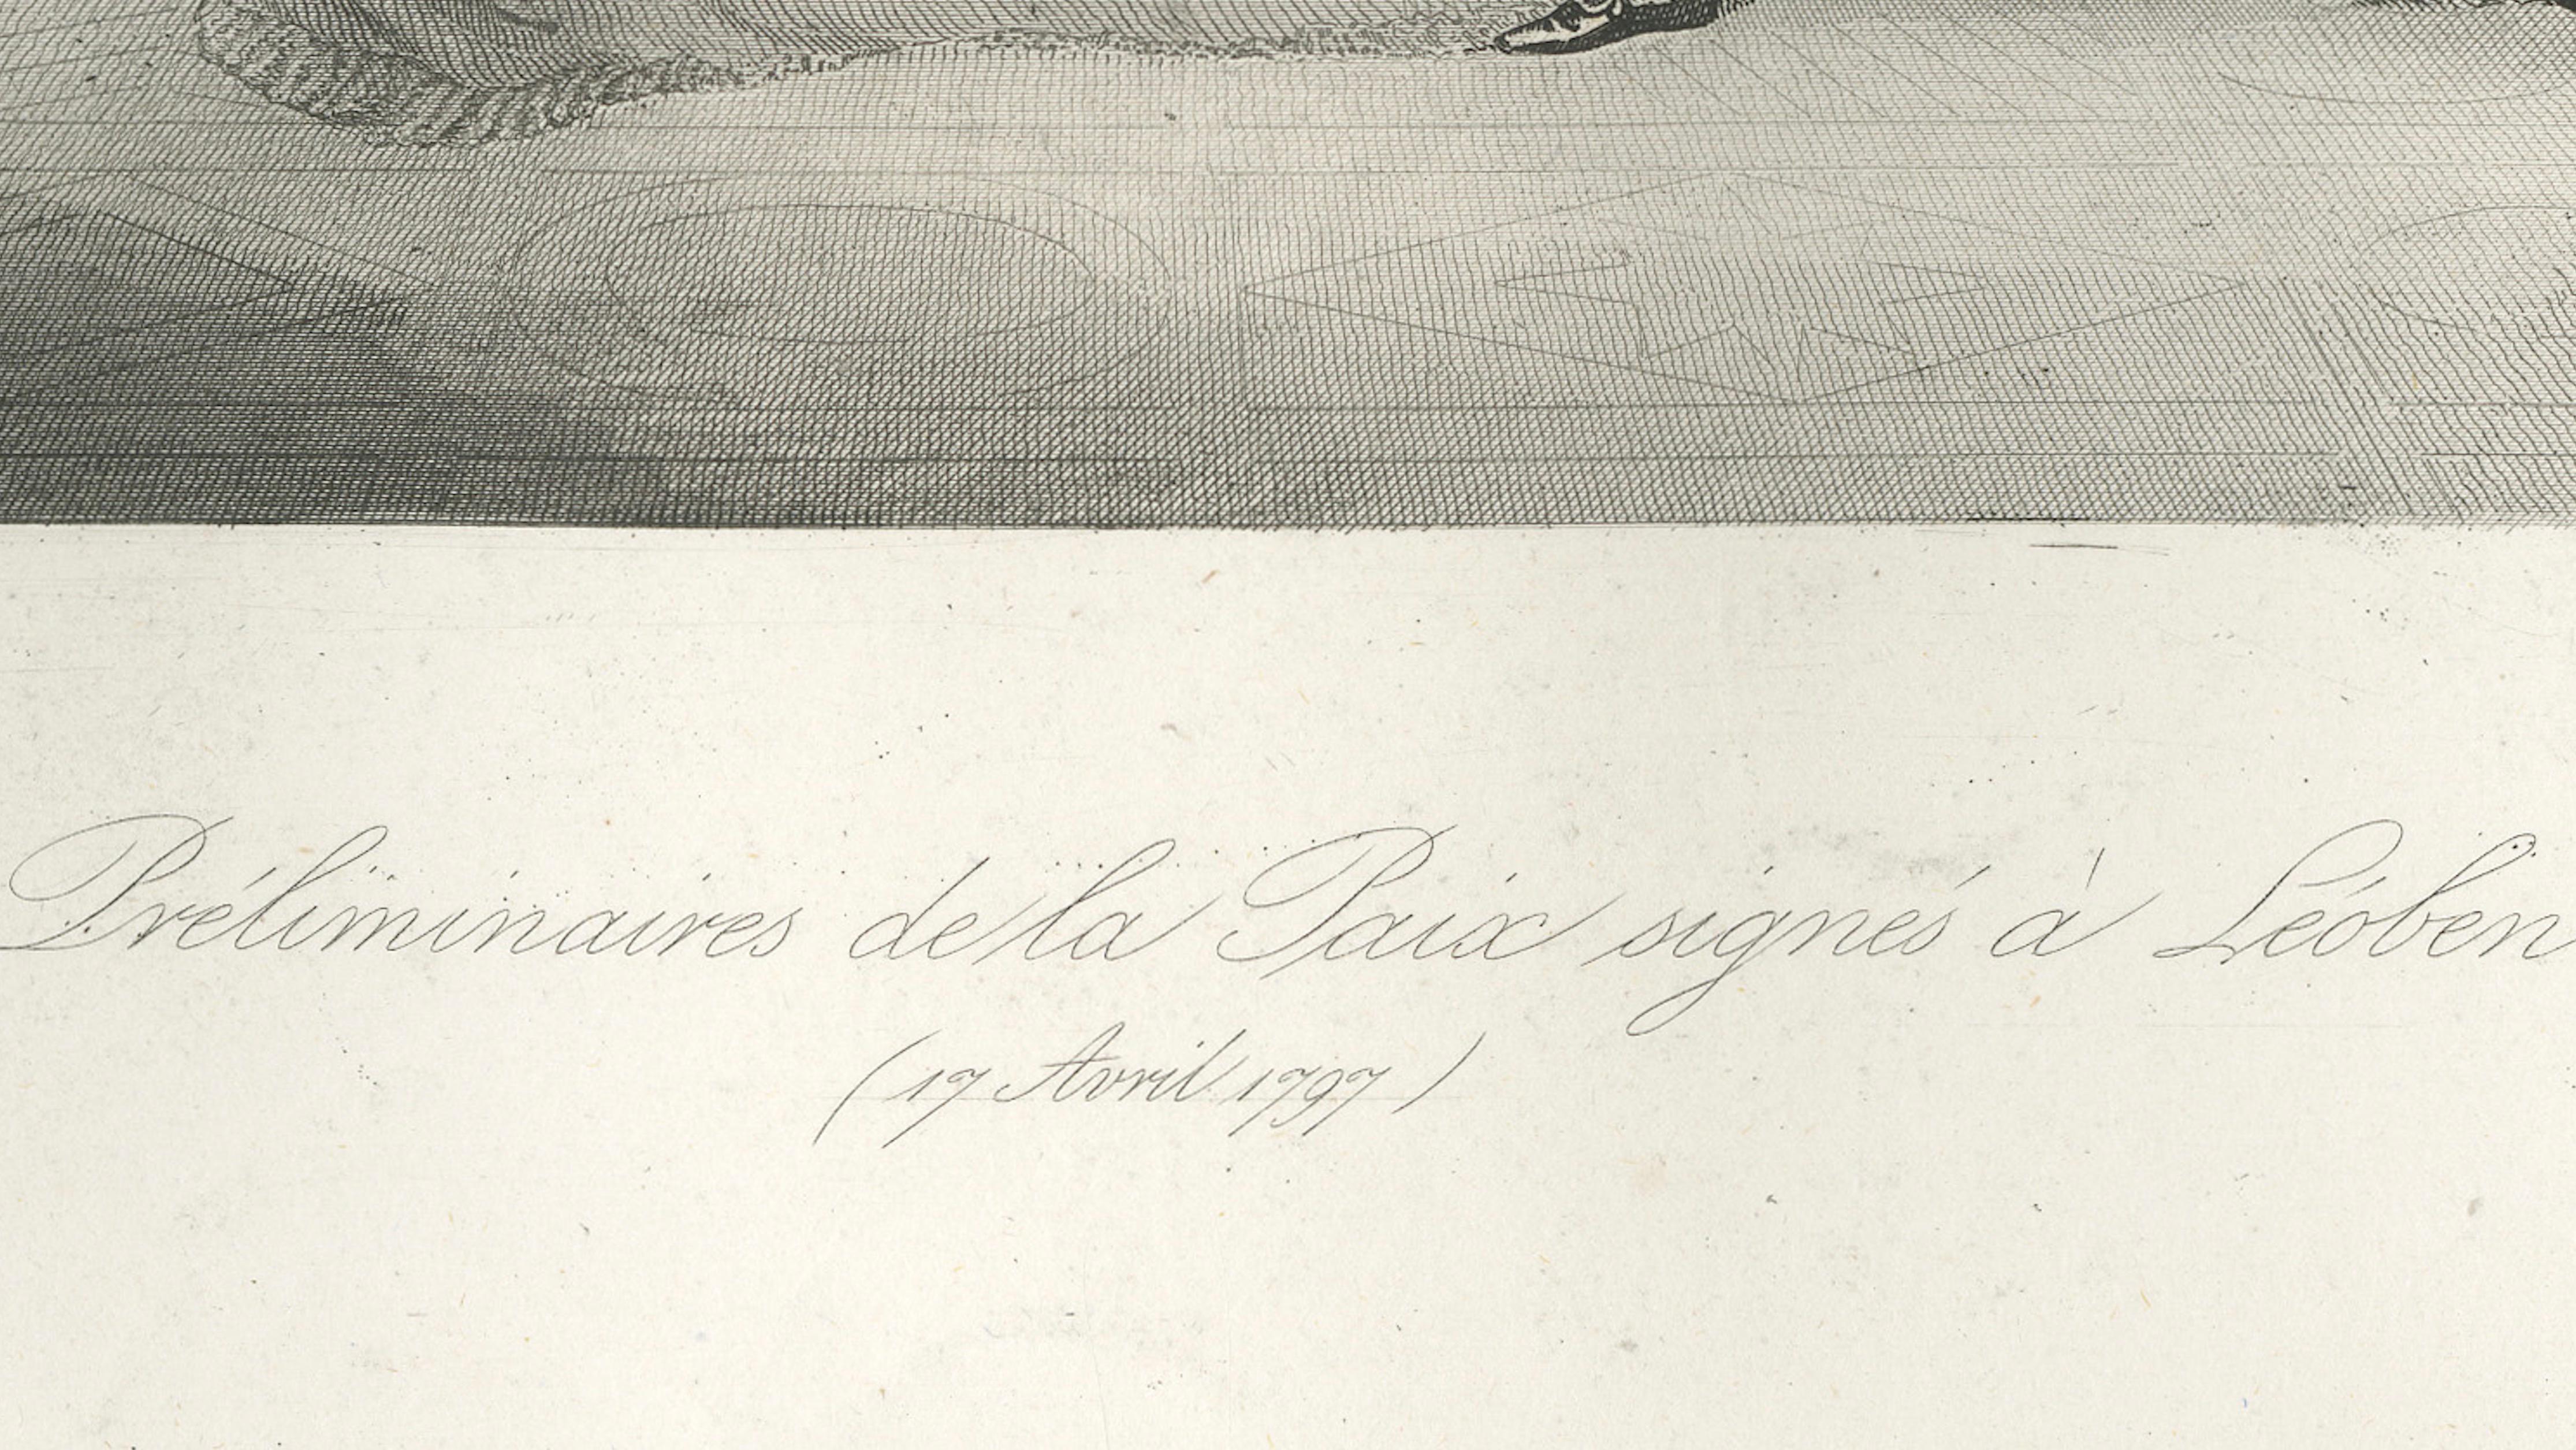 Préliminaires de la Paix signés à Léoben
(17 Avril 1797)